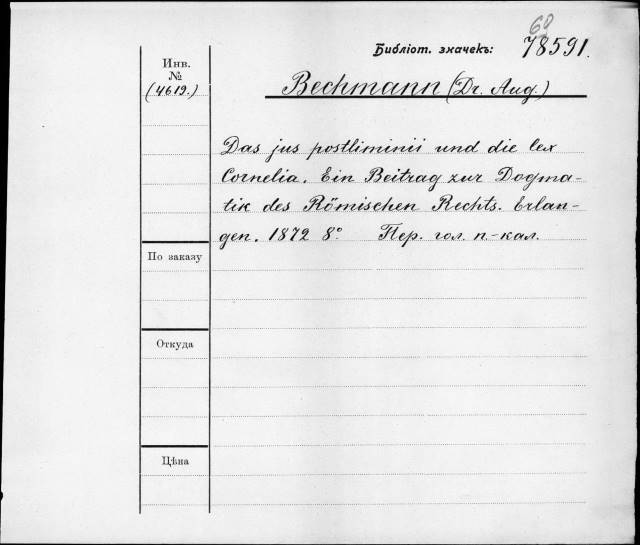 60
Библіот. значекъ: 78591.
Инв.
№
(4619.)
Bechmann (Dr. Aug.)
Das jus postliminii und die lex
Cornelia. Ein Beitrag zur Dogma-
tik des Römischen Rechts. Erlan-
gen. 1872 8° Пер. гол. п.-кал.
По заказу
Откуда
Цѣна